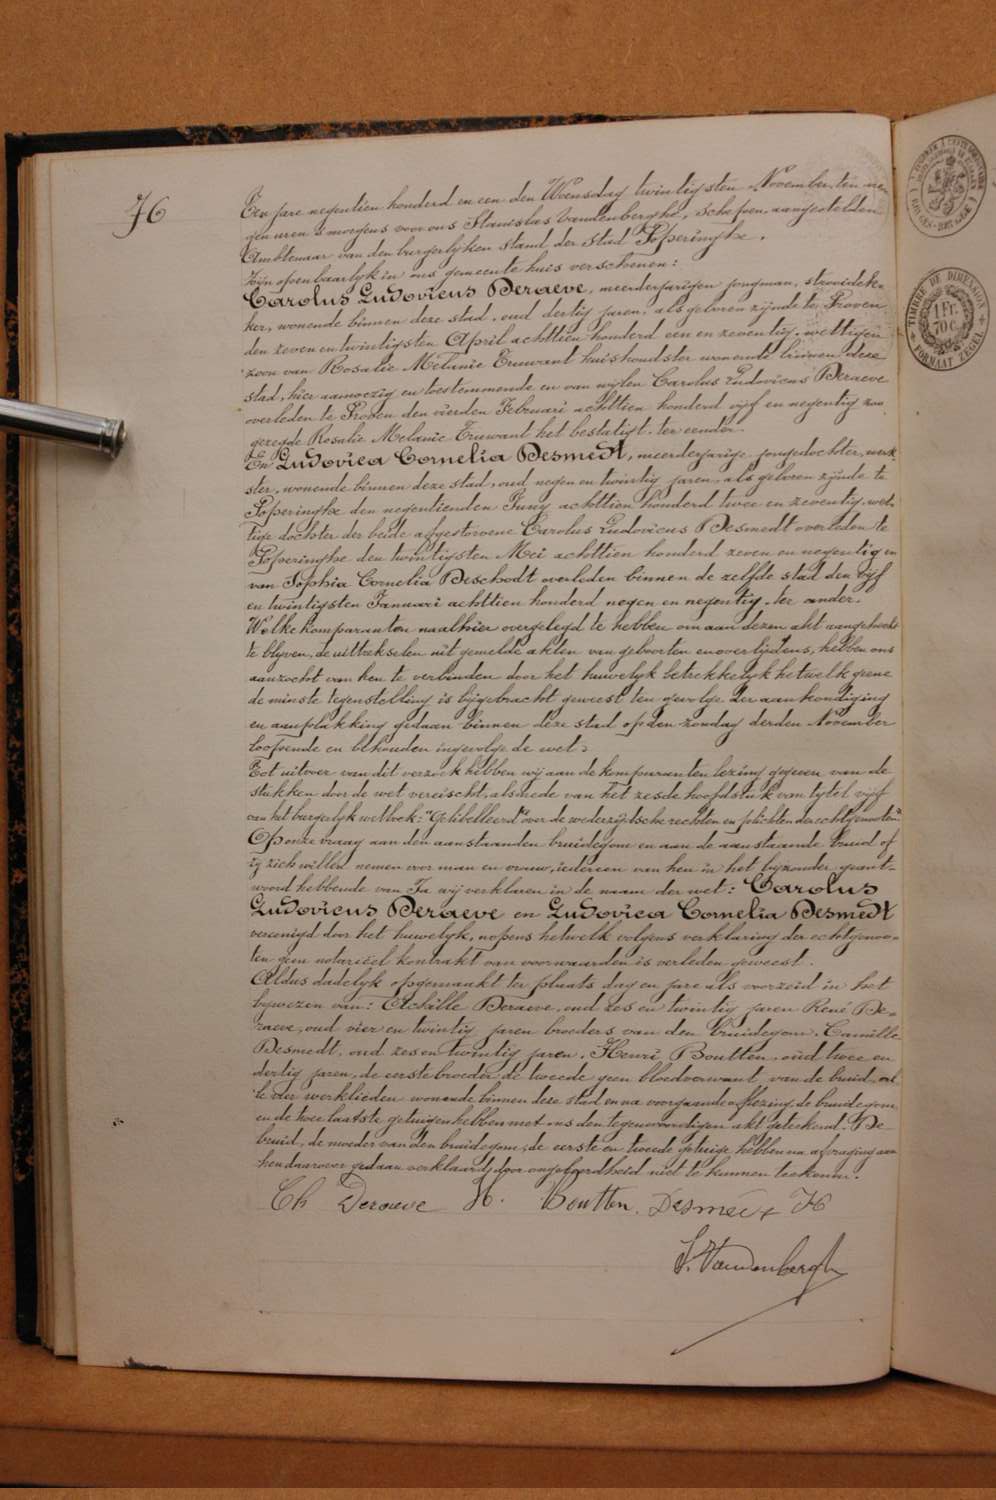 76
Ten jare negentien honderd en een den Woensdag twintigsten November, ten ne-
gen uren 's morgens voor ons Stanislas Vandenberghe, Schepen, aangestelden
Ambtenaar van den burgerlyken stand der stad Poperinghe.
Zijn openbaarlyk in ons gemeente huis verschenen:
Carolus Ludovicus Deraeve, meerderjarigen jongman, strooideke-
ker, wonende binnen deze stad, oud dertig jaren, als geboren zijnde te Proven
den zeven en twintigsten April achttien honderd een en zeventig, wettigen
zoon van Rosalie Melanie Truwant huishoudster wonende binnen deze
stad, hier aanwezig en toestemmende en van wylen Carolus Ludovicus Deraeve
overleden te Proven den vierden Februari achttien honderd vijf en negentig zoo
gezegde Rosalie Melanie Truwant het bestatigt. ter eender.
En Ludovica Cornelia Desmedt, meerderjarige jongedochter, werk-
ster, wonende binnen deze stad, oud negen en twintig jaren, als geboren zijnde te
Poperinghe den negentienden Juny achttien honderd twee en zeventig, wet-
tige dochter der beide afgestorvene Carolus Ludovicus Desmedt overleden te
Poperinghe den twintigsten Mei achttien honderd zeven en negentig en
van Sophia Cornelia Deschodt overleden binnen de zelfde stad den vijf
en twintigsten Januari achttien honderd negen en negentig. ter ander.
Welke komparanten naalhier overgelegd te hebben om aan dezen akt aangehecht
te blyven, de uittrekselen uit gemelde akten van geboorten en overlijdens, hebben ons
aanzocht van hen te verbinden door het huwelyk betrekkelyk hetwelk geene
de minste tegenstelling is bijgebracht geweest ten gevolge der aankondiging
en aanplakking gedaan binnen deze stad op den zondag derden November
loopende en behouden ingevolge de wet;
Tot uitvoer van dit verzoek hebben wij aan de komparanten lezing gegeven van de
stukken door de wet vereischt, alsmede van het zesde hoofdstuk van tytel vijf
van het burgerlyk wetboek: "Gelibelleerd" over de wederzijdsche rechten en plichten der echtgenooten"
Op onze vraag aan den aanstaanden bruidegom en aan de aanstaande bruid of
zy zich willen nemen voor man en vrouw, iedereen van hen in het bijzonder geant-
woord hebbende van Ja wij verklaren in de naam der wet: Carolus
Ludovicus Deraeve en Ludovica Cornelia Desmedt
vereenigd door het huwelyk, nopens hetwelk volgens verklaring der echtgenoo-
ten geen notariëel kontrakt van voorwaarden is verleden geweest.
Aldus dadelyk opgemaakt ter plaats dag en jare als voorzeid in het
bywezen van: Achille Deraeve, oud zes en twintig jaren René De-
raeve, oud vier en twintig jaren broeders van den bruidegom, Camille
Desmedt, oud zes en twintig jaren, Henri Boutten, oud twee en
dertig jaren, de eerste broeder de tweede geen bloedverwant van de bruid, al-
le vier werklieden wonende binnen deze stad en na voorgaande aflezing, de bruidegom
en de twee laatste getuigen hebben met ons den tegenwoordigen akt geteekend. De
bruid, de moeder van den bruidegom, de eerste en tweede getuige hebben na afvraging aan
hen daarover gedaan verklaard door ongeleerdheid niet te kunnen teekenen.
Ch Deraeve H. Boutten. Desmedt
S. Vandenberghe
TIMBRE DE DIMENSION
1 Fr.
70 C.
FORMAAT ZEGEL